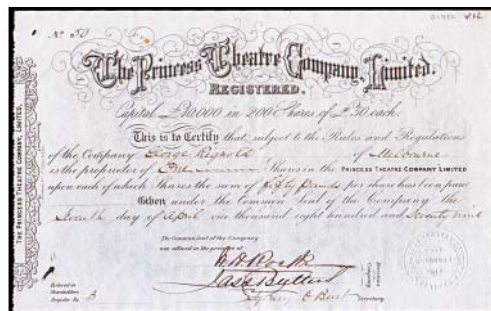 Nº 50
The Princess Theatre Company, Limited.
REGISTERED.
Capital £10,000 in 200 Shares of £50 each.
This is to Certify that, subject to the Rules and Regulations
of the Company George Rignold of Melbourne
is the proprietor of One Shares in the PRINCESS THEATRE COMPANY LIMITED
upon each of which Shares the sum of fifty pounds per share has been paid
Given under the Common Seal of the Company the
Seventh day of April one thousand eight hundred and Seventy nine
The Common Seal of the Company
was affixed in the presence of
Directors
of the
Company
Secretary
Entered in
Shareholders
Register Fo. 3
THE PRINCESS THEATRE COMPANY, LIMITED.